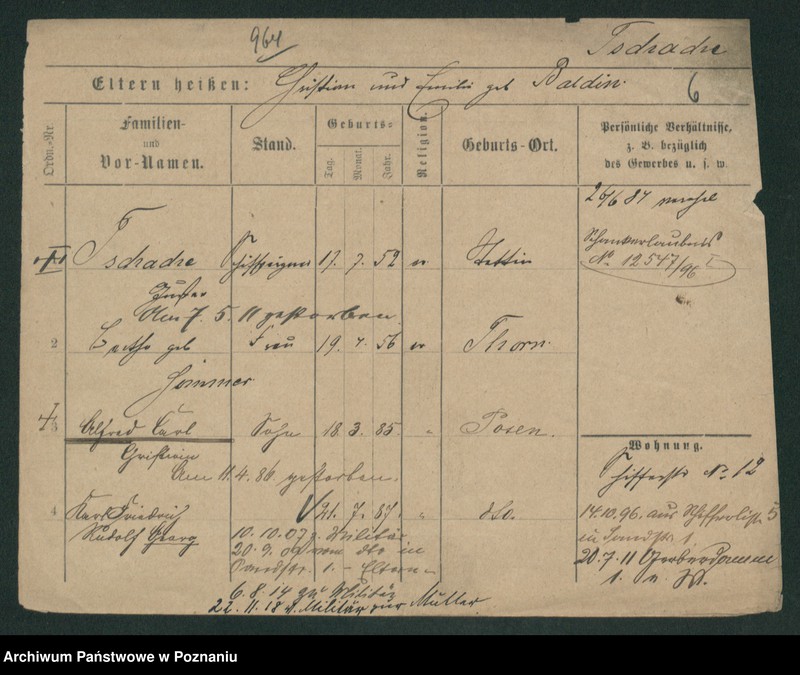 964
Tschache
Eltern heißen: Christian und Emilie geb Baldin.
6
Ordn.-Nr.
Familien-
und
Vor-Namen.
Stand.
Geburts-
Tag.
Monat.
Jahr.
Religion.
Geburts-Ort.
Persönliche Verhältnisse,
z. B. bezüglich
des Gewerbes u. s. w.
26/6 84
Tschache
17. 7. 52 ev
Stettin
Schankerlaubnis
No. 12547/96
Gustav
Am 7. 5. 11 gestorben.
2 Bertha geb Frau 19. 4. 56 ev Thorn.
Hammer
3 Alfred Carl Sohn 18. 3. 85. " Posen.
Christian
Am 11. 4. 86 gestorben.
Wohnung.
Schifferstr No. 12
4 Karl Friedrich 21. 7. 87. " dto.
Rudolf Georg
10. 10. 07 z. Militär
20. 9. 09 vom dto in
Sandstr. 1. – Eltern
6. 8. 14 zu Militär
22. 11. 18 v. Militär zur Mutter
14.10.96. aus Schifferstr. 5
in Sandstr 1.
20. 7. 11 Gerberdamm
1.
Archiwum Państwowe w Poznaniu